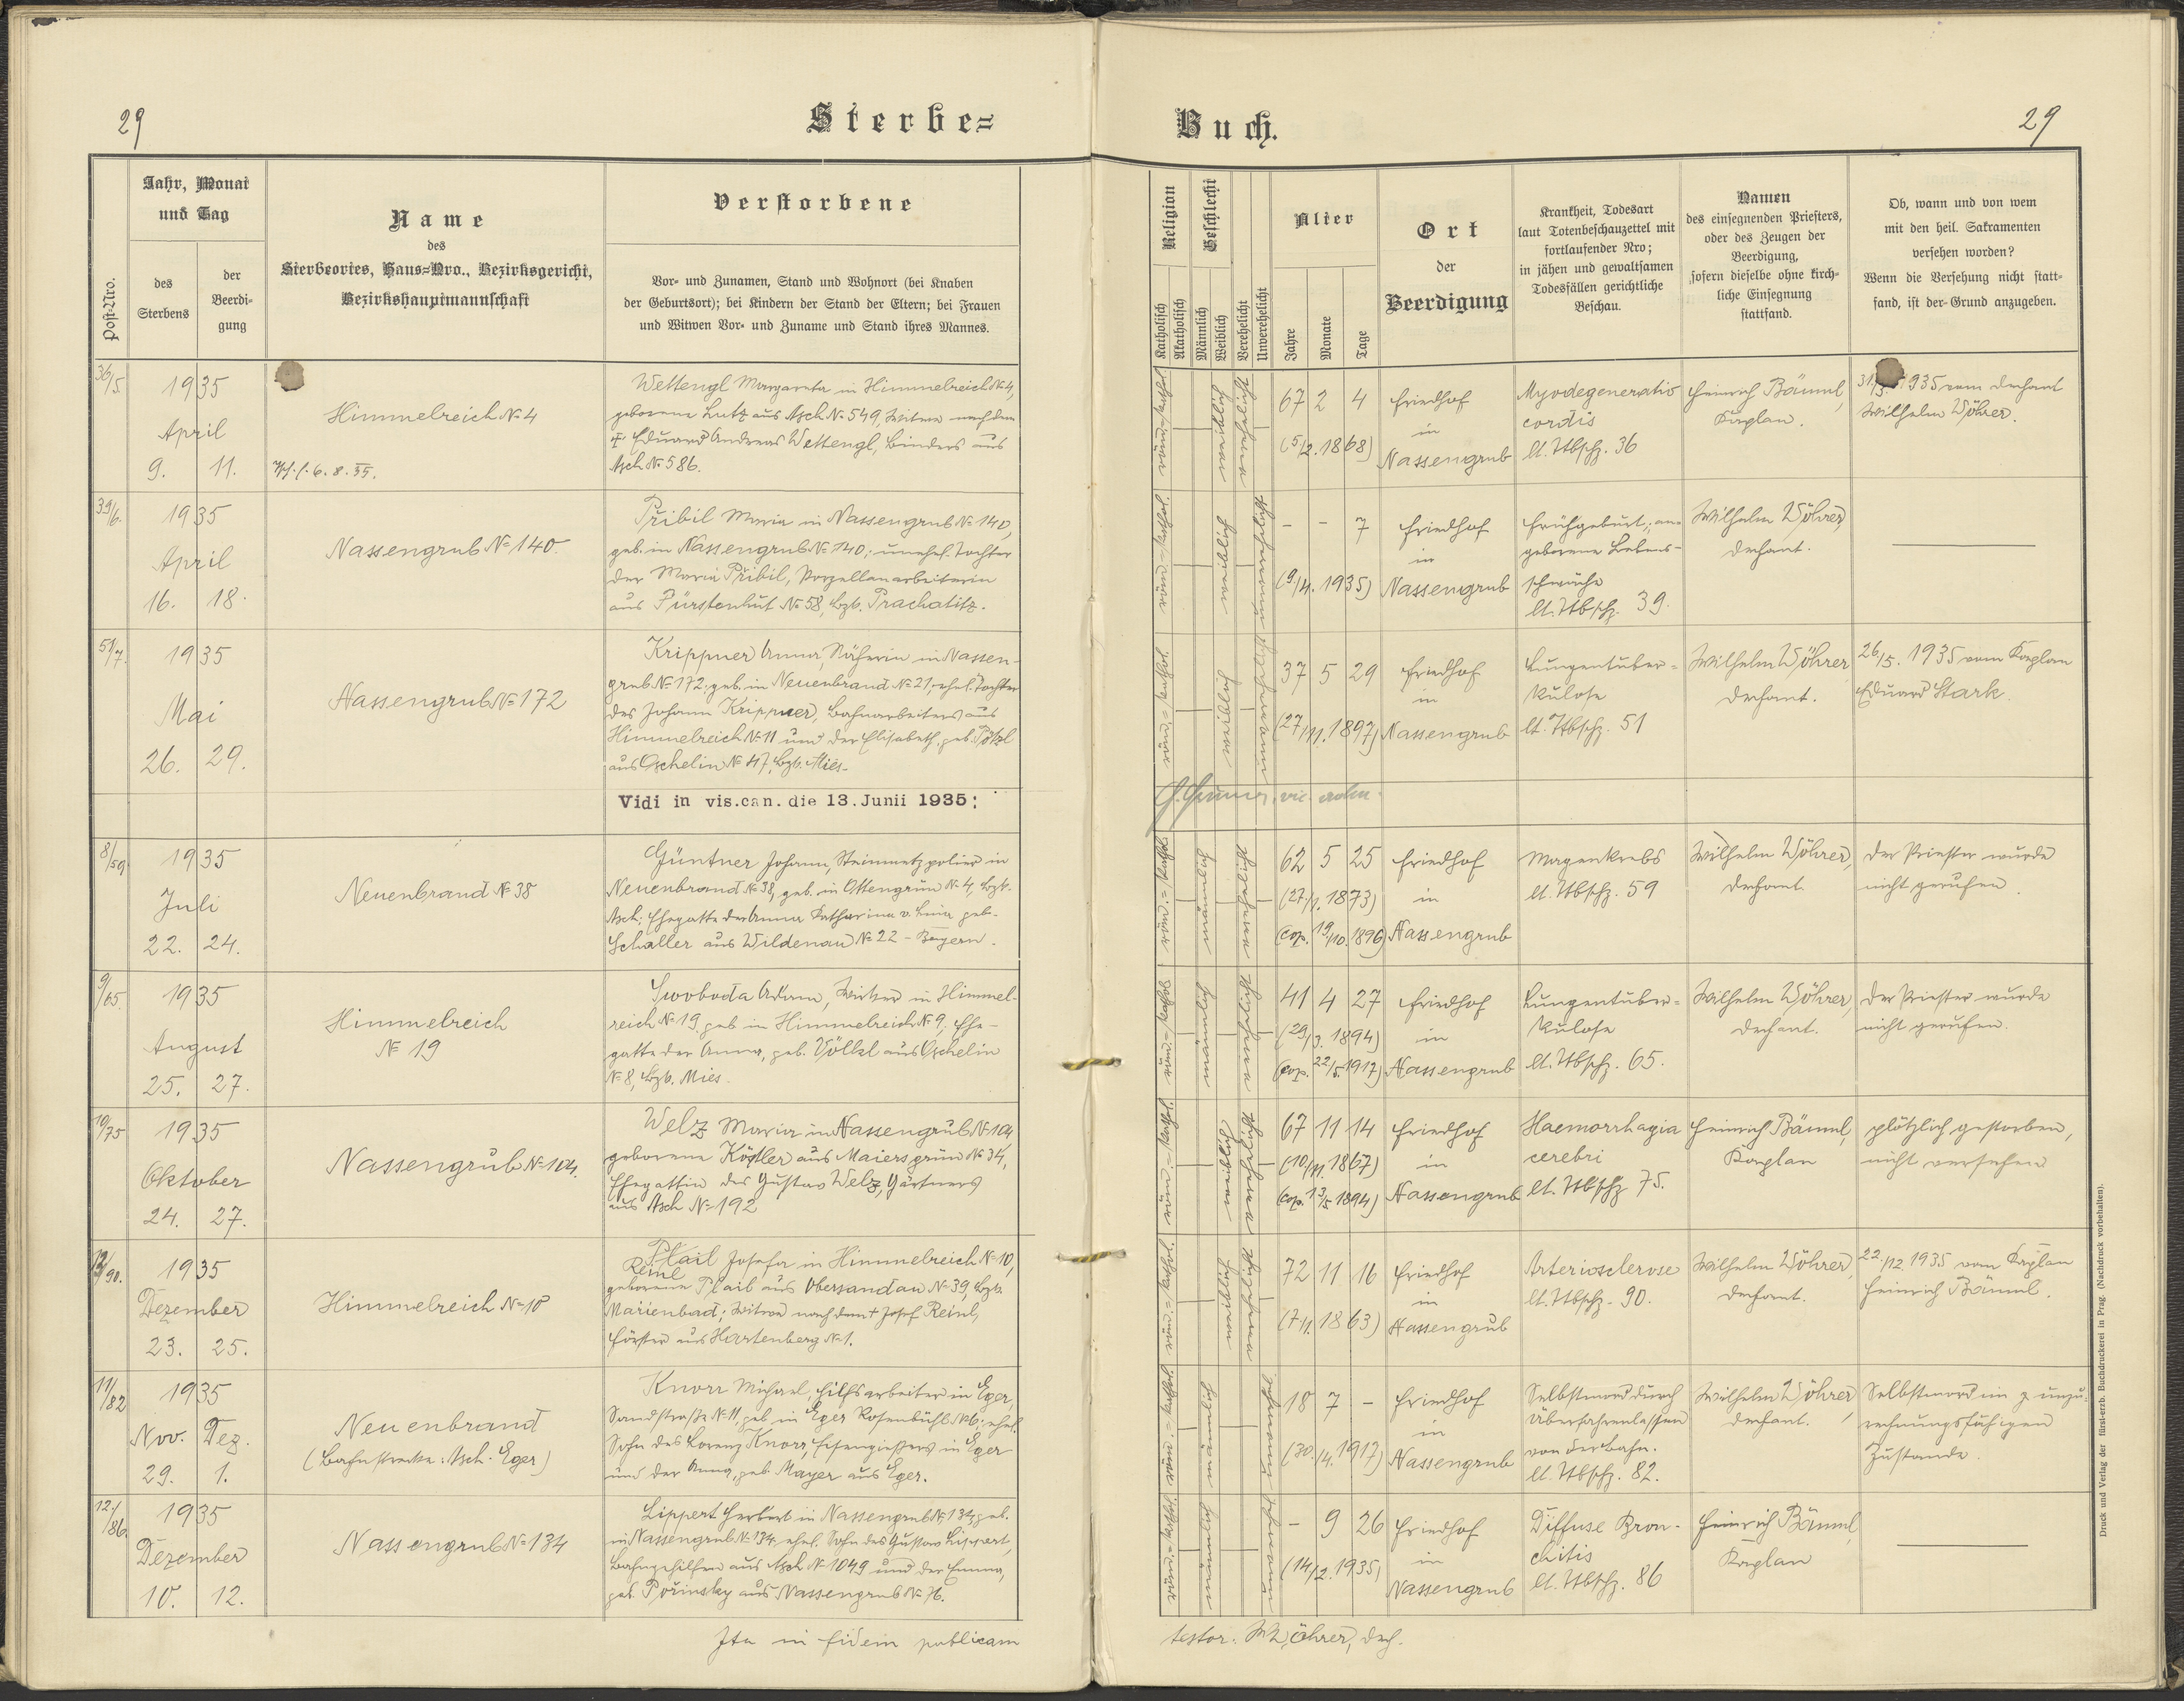 29
Sterbe=
Buch.
29
Post-Nro.
Jahr, Monat
und Tag
des
Sterbens
der
Beerdi-
gung
Name
des
Sterbeortes, Haus=Nro., Bezirksgericht,
Bezirkshauptmannschaft
Verstorbene
Vor- und Zunamen, Stand und Wohnort (bei Knaben
der Geburtsort); bei Kindern der Stand der Eltern; bei Frauen
und Witwen Vor- und Zuname und Stand ihres Mannes.
Religion
Katholisch
Akatholisch
Geschlecht
Männlich
Weiblich
Verehelicht
Unverehelicht
Alter
Jahre
Monate
Tage
Ort
der
Beerdigung
Krankheit, Todesart
laut Totenbeschauzettel mit
fortlaufender Nro;
in jähen und gewaltsamen
Todesfällen gerichtliche
Beschau.
Namen
des einsegnenden Priesters,
oder des Zeugen der
Beerdigung,
sofern dieselbe ohne kirch-
liche Einsegnung
stattfand.
Ob, wann und von wem
mit den heil. Sakramenten
versehen worden?
Wenn die Versehung nicht statt-
fand, ist der Grund anzugeben.
36/5.
1935
April
9. 11.
Himmelreich № 4
6. 8. 35.
Wettengl Margareta in Himmelreich № 4,
geborene Lutz aus Asch № 549, Witwe nach dem
† Eduard Andreas Wettengl, Binders aus
Asch № 586.
röm.=kathol.
weiblich
verehelicht
67 2 4
(5/2. 1868)
Friedhof
in
Nassengrub
Myodegeneratio
cordis
lt. Ttbschz. 36
Heinrich Bäuml,
Kaplan.
1935 vom Dechant
Wilhelm Wöhrer.
39/6.
1935
April
16. 18.
Nassengrub № 140.
Přibil Maria in Nassengrub № 140,
geb. in Nassengrub № 140; unehel. Tochter
der Maria Přibil, Porzellanarbeiterin
aus Fürstenhut № 58, Bzb. Prachatitz.
röm.=kathol.
weiblich
unverehelicht
- - 7
(9./4. 1935)
Friedhof
in
Nassengrub
Frühgeburt; an-
geborene Lebens-
schwäche
lt. Ttbschz. 39.
Wilhelm Wöhrer,
Dechant.
51/7.
1935
Mai
26. 29.
Nassengrub № 172
Krippner Anna, Näherin in Nassen-
grub № 172; geb. in Neuenbrand № 21, ehel. Tochter
des Johann Krippner, Bahnarbeiters aus
Himmelreich № 11 und der Elisabeth, geb. Pötzl
aus Oschelin № 47, Bzb. Mies.
röm.=kathol.
weiblich
unverehelicht
37 5 29
(27/11. 1897)
Friedhof
in
Nassengrub
Lungentuber=
kulose
lt. Ttbschz. 51
Wilhelm Wöhrer
Dechant.
26/5. 1935 vom Kaplan
Eduard Stark.
Vidi in vis.can. die 13. Junii 1935:
8/59.
1935
Juli
22. 24.
Neuenbrand № 38
Güntner Johann, Steinmetzpolier in
Neuenbrand № 38, geb. in Ottengrün № 4, Bzb.
Asch; Ehegatte der Anna Katharina geb.
Schaller aus Wildenau № 22 - Bayern.
röm.=kathol.
männlich
verehelicht
62 5 25
(27./1. 1873)
(cop. 19./10. 1896)
Friedhof
in
Nassengrub
Magenkrebs
lt. Ttbschz. 59
Wilhelm Wöhrer,
Dechant.
Der Priester wurde
nicht gerufen.
9/65.
1935
August
25. 27.
Himmelreich
№ 19
Swoboda Adam, Weber in Himmel-
reich № 19, geb. in Himmelreich № 9, Ehe-
gatte der Anna, geb. Völkl aus Oschelin
№ 8, Bzb. Mies.
röm.=kathol.
männlich
verehelicht
41 4 27
(29/3. 1894)
(cop. 22/5. 1917)
Friedhof
in
Nassengrub
Lungentuber=
kulose
lt. Ttbschz. 65.
Wilhelm Wöhrer,
Dechant.
Der Priester wurde
nicht gerufen.
10/75
1935
Oktober
24. 27.
Nassengrub № 104.
Welz Maria in Nassengrub № 104,
geborene Köstler aus Maiersgrün № 34,
Ehegattin des Gustav Welz, Gärtners
aus Asch № 192
röm.=kathol.
weiblich
verehelicht
67 11 14
(10/11. 1867)
(cop. 13/5 1894)
Friedhof
in
Nassengrub
Haemorrhagia
cerebri
lt. Ttbschz 75.
Heinrich Bäuml,
Kaplan
plötzlich gestorben,
nicht versehen
/90.
1935
Dezember
23. 25.
Himmelreich № 10
Reinl
Plail Josefa in Himmelreich № 10,
geborene Plail aus Obersandau № 39, Bzb.
Marienbad; Witwe nach dem † Josef Reinl,
Förster aus Hartenberg № 1.
röm.=kathol.
weiblich
verehelicht
72 11 16
(7/1. 1863)
Friedhof
in
Nassengrub
Arteriosclerose
lt. Ttbschz. 90.
Wilhelm Wöhrer,
Dechant.
22./12 1935 vom Kaplan
Heinrich Bäuml.
11/82
1935
Nov. Dez.
29. 1.
Neuenbrand
(Bahnstrecke: Asch-Eger)
Knorr Michael, Hilfsarbeiter in Eger,
Sandstraße № 11, geb. in Eger Rosenbühl № 6; ehel.
Sohn des Lorenz Knorr, Eisengießers in Eger
und der Anna, geb. Mayer aus Eger.
röm.=kathol.
männlich
18 7 -
(30./4. 1917)
Friedhof
in
Nassengrub
Selbstmord durch
Überfahrenlassen
von der Bahn.
lt. Ttbschz. 82.
Wilhelm Wöhrer,
Dechant.
Selbstmord im unzu-
rechnungsfähigen
Zustande.
12./86.
1935
Dezember
10. 12.
Nassengrub № 134
Lippert Herbert in Nassengrub № 134, geb.
in Nassengrub № 134, ehel. Sohn des Gustav Lippert,
Bahngehilfen aus Asch № 1049 und der Emma,
geb. Pořinsky aus Nassengrub № 76.
röm.=kathol.
männlich
- 9 26
(14/2. 1935)
Friedhof
in
Nassengrub
Diffuse Bron-
chitis
lt. Ttbschz. 86
Heinrich Bäuml,
Kaplan
Ita in fidem publicam
testor: W. Wöhrer, Dech.
Druck und Verlag der fürst-erzb. Buchdruckerei in Prag. (Nachdruck vorbehalten).